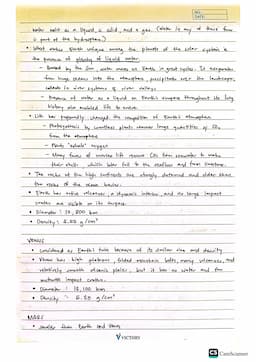 NO.
DATE:
water exist as a liquid, a solid, and a gas. (Water in any of these forms
is part of the hydrosphere.)
• What makes Earth unique among the planets of the solar system is
the presence of plenty of liquid water
- by the sun, water moves on Earth in great cycles. It evaporates
from huge oceans into the atmosphere, precipitates over the landscape,
in systems of river valleys
- Presence of water as a liquid on Earth's surface throughout its long
history also enabled life to evolve.
• Life has profoundly changed the composition of Earth's atmosphere
- Photosynthesis by countless plants remove large quantities of CO₂
from the atmosphere
- Plants "exhale" oxygen
- Many forms of marine life remove CO₂ from seawater to make
their shells, which later fall to the seafloor and form limestone.
• The rocks of the high continents are strongly deformed and older than
the rocks of the ocean basins.
• Earth has active volcanoes, a dynamic interior, and no large impact
craters are visible on its surface.
• Diameter: 12,800 km
• Density: 5.55 g/cm³
VENUS
• Considered as Earth's twin because of its similar size and density
• Venus has high plateaus, folded mountain belts, many volcanoes, and
relatively smooth volcanic plains, but it has no water and few
impact craters.
• Diameter = 12,100 km
• Density = g/cm³
MARS
• Smaller than Earth and Venus
VICTORY
CS CamScanner